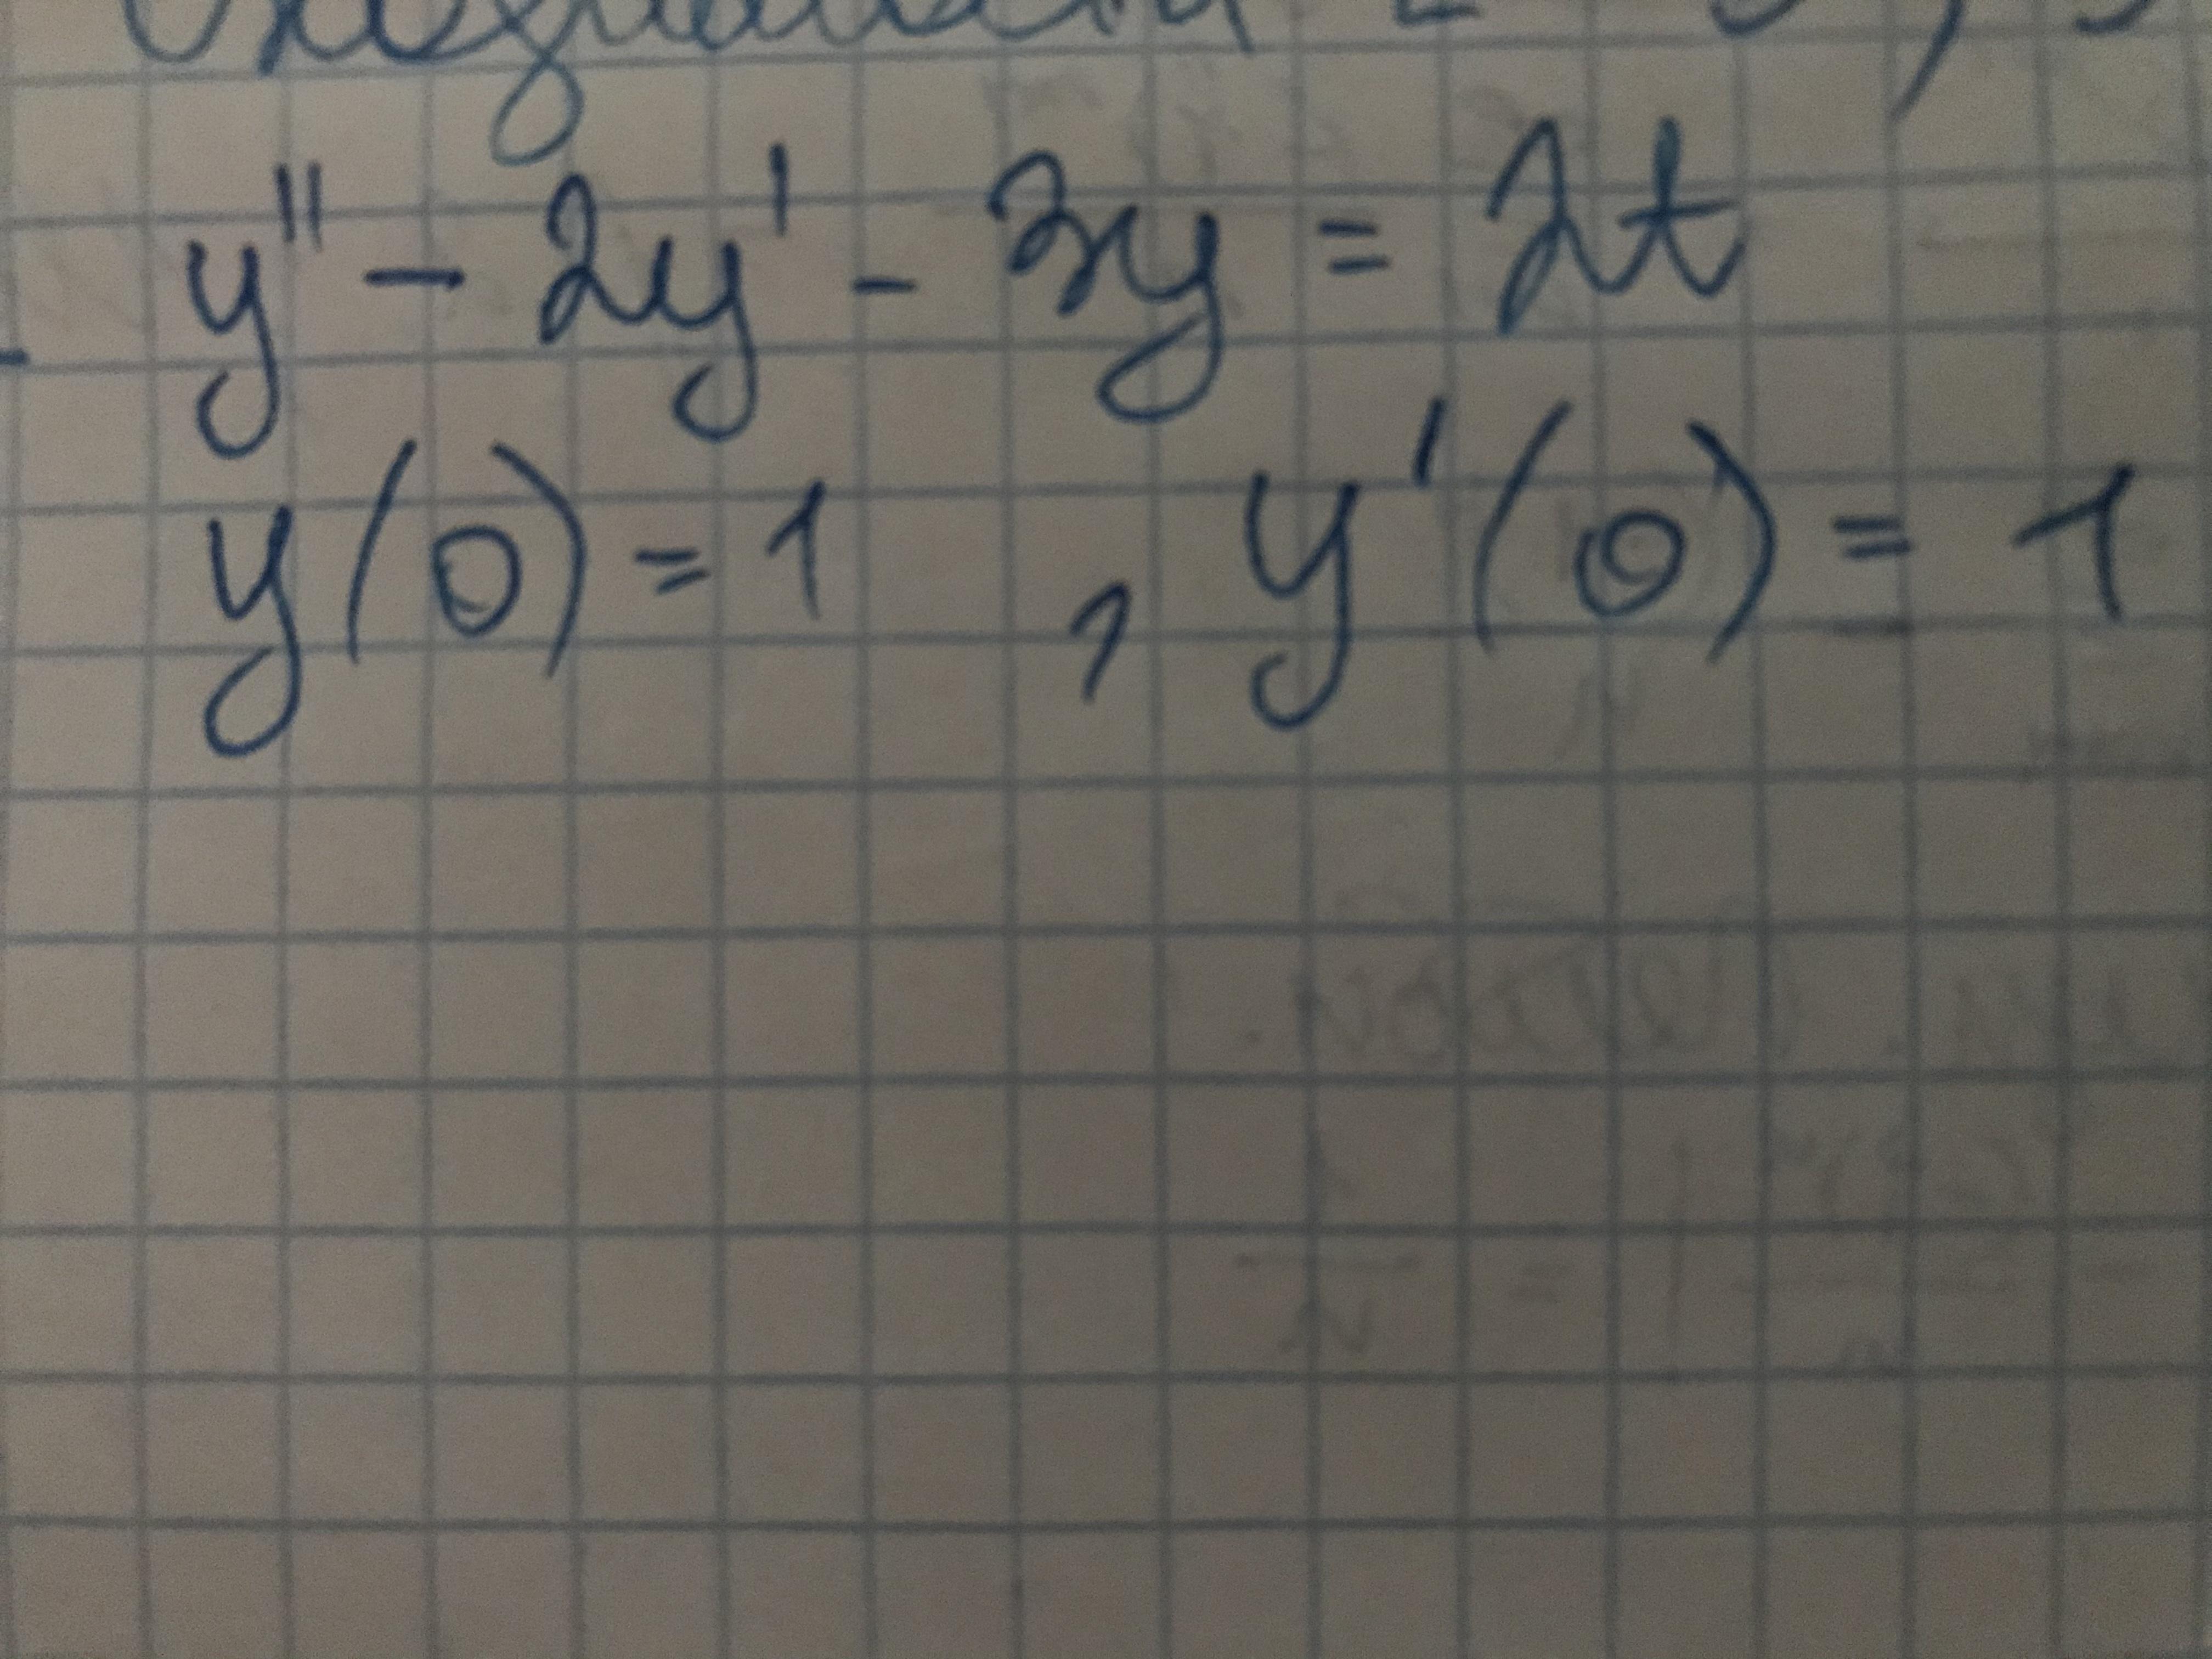 y'' - 2y' - 3y = 2t
y(0) = 1 , y'(0) = 1